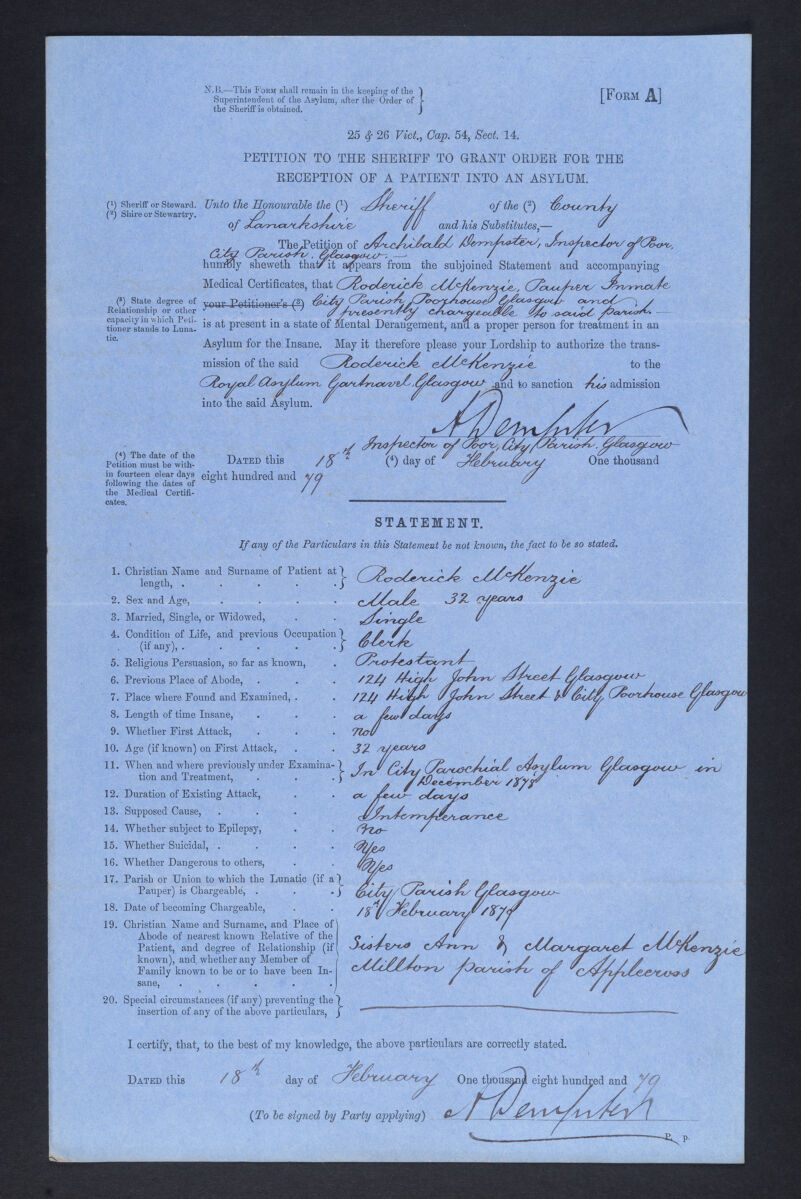 N.B.—This Form shall remain in the keeping of the
Superintendent of the Asylum, after the Order of
the Sheriff is obtained.
[Form A]
25 & 26 Vict., Cap. 54, Sect. 14.
PETITION TO THE SHERIFF TO GRANT ORDER FOR THE
RECEPTION OF A PATIENT INTO AN ASYLUM.
(1) Sheriff or Steward.
(2) Shire or Stewartry.
Unto the Honourable the (1) Sheriff of the (2) County
of Lanarkshire and his Substitutes,—
The Petition of Archibald Dempster, Inspector of Poor,
City Parish, Glasgow.—
humbly sheweth that it appears from the subjoined Statement and accompanying
Medical Certificates, that Roderick McKenzie, Pauper Inmate
(3) State degree of
Relationship or other
capacity in which Peti-
tioner stands to Luna-
tic.
your Petitioner's (3) City Parish Poorhouse Glasgow and
presently chargeable to said parish.—
is at present in a state of Mental Derangement, and a proper person for treatment in an
Asylum for the Insane. May it therefore please your Lordship to authorize the trans-
mission of the said Roderick McKenzie to the
Royal Asylum Gartnavel Glasgow and to sanction his admission
into the said Asylum.
A Dempster
Inspector of Poor, City Parish. Glasgow
(4) The date of the
Petition must be with-
in fourteen clear days
following the dates of
the Medical Certifi-
cates.
Dated this 18th (4) day of February One thousand
eight hundred and 79
STATEMENT.
If any of the Particulars in this Statement be not known, the fact to be so stated.
1. Christian Name and Surname of Patient at
length, . . . . . . Roderick McKenzie
2. Sex and Age, . . . . Male 32 years
3. Married, Single, or Widowed, . . Single
4. Condition of Life, and previous Occupation
(if any), . . . . . . Clerk
5. Religious Persuasion, so far as known, . Protestant
6. Previous Place of Abode, . . . 124 High John Street Glasgow
7. Place where Found and Examined, . . 124 High John Street & City Poorhouse Glasgow
8. Length of time Insane, . . . a few days
9. Whether First Attack, . . . no
10. Age (if known) on First Attack, . . 32 years
11. When and where previously under Examina-
tion and Treatment, . . . In City Parochial Asylum Glasgow in
December 1878
12. Duration of Existing Attack, . . a few days
13. Supposed Cause, . . . . Intemperance
14. Whether subject to Epilepsy, . . no
15. Whether Suicidal, . . . . Yes
16. Whether Dangerous to others, . . Yes
17. Parish or Union to which the Lunatic (if a
Pauper) is Chargeable, . . . City Parish Glasgow
18. Date of becoming Chargeable, . . 18th February 1879
19. Christian Name and Surname, and Place of
Abode of nearest known Relative of the
Patient, and degree of Relationship (if
known), and whether any Member of
Family known to be or to have been In-
sane, . . . . . .
Sisters Ann & Margaret McKenzie
Millton parish of Applecross
20. Special circumstances (if any) preventing the
insertion of any of the above particulars,
I certify, that, to the best of my knowledge, the above particulars are correctly stated.
Dated this 18th day of February One thousand eight hundred and 79
(To be signed by Party applying) A Dempster
P. p.